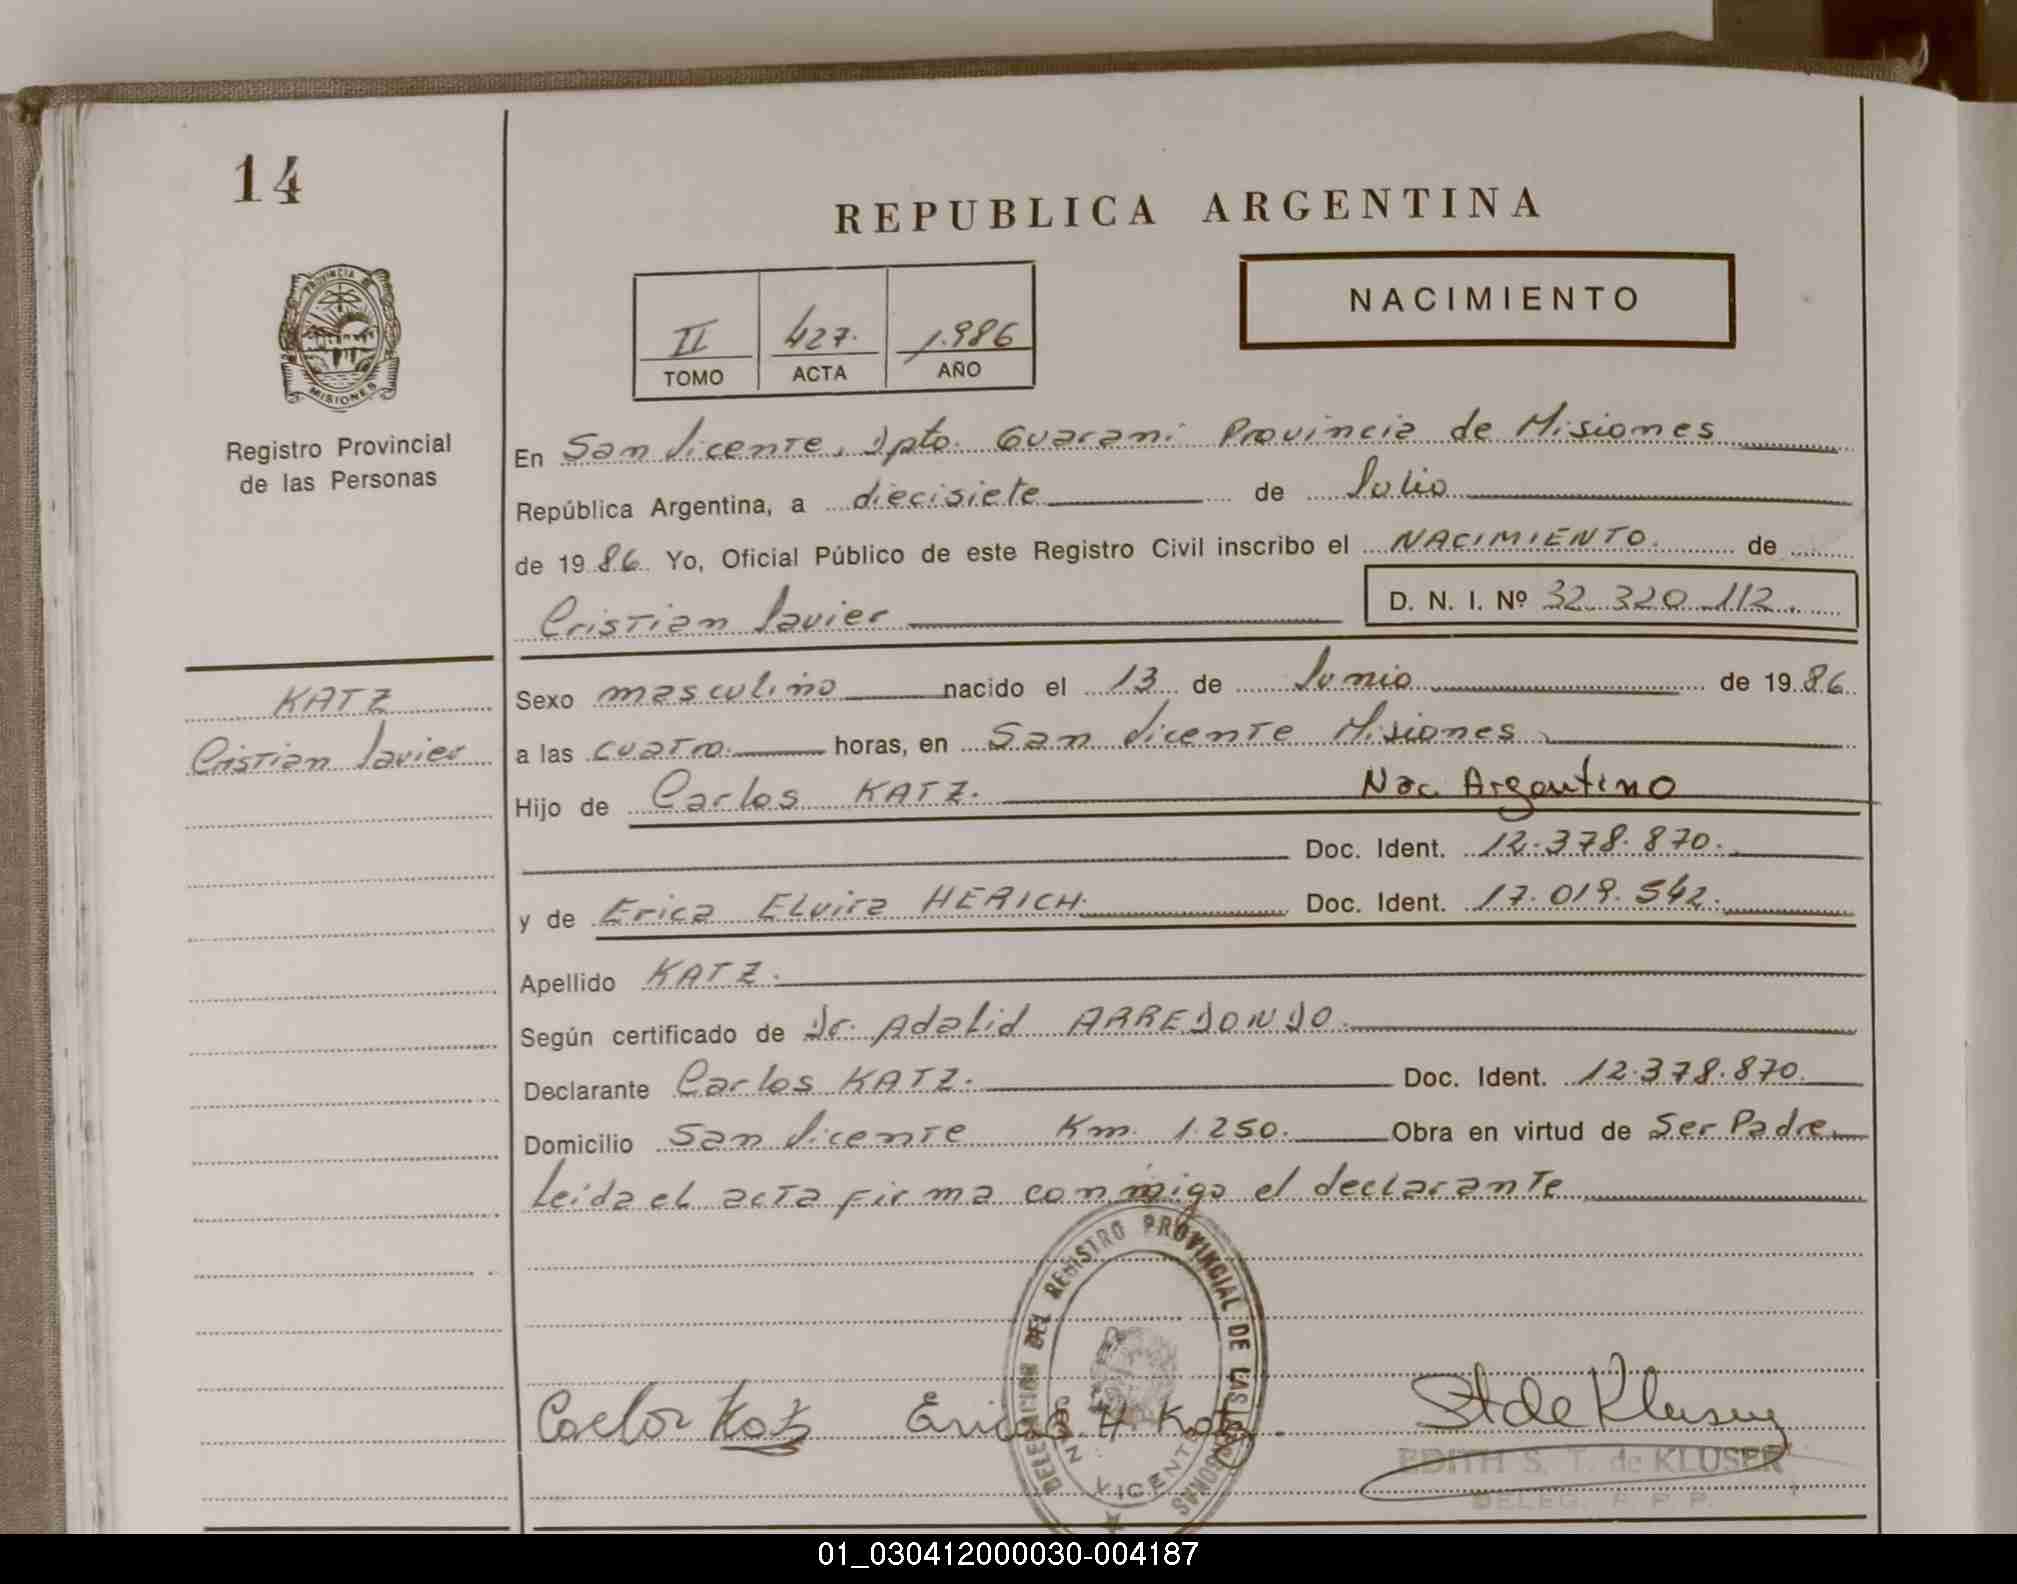 14
REPUBLICA ARGENTINA
PROVINCIA DE
MISIONES
Registro Provincial
de las Personas
II 427. 1.986
TOMO ACTA AÑO
NACIMIENTO
En San Vicente, Dpto. Guaraní Provincia de Misiones
República Argentina, a diecisiete de Julio
de 1986. Yo, Oficial Público de este Registro Civil inscribo el NACIMIENTO. de
Cristian Javier D. N. I. Nº 32.320.112.
KATZ
Cristian Javier
Sexo masculino nacido el 13 de Junio de 1986
a las cuatro. horas, en San Vicente Misiones
Hijo de Carlos KATZ. Nac. Argentino
Doc. Ident. 12.378.870.
y de Erica Elvira HERICH. Doc. Ident. 17.019.542.
Apellido KATZ.
Según certificado de Dr. Adalid ARREDONDO.
Declarante Carlos KATZ. Doc. Ident. 12.378.870.
Domicilio San Vicente Km. 1.250. Obra en virtud de Ser Padre.
Leída el acta firma conmigo el declarante
DELEGACION DEL REGISTRO PROVINCIAL DE LAS PERSONAS
SAN VICENTE
Carlos Katz Erica H. Katz. St de Kluser
EDITH S. T. de KLUSER
DELEG. R. P. P.
01_030412000030-004187